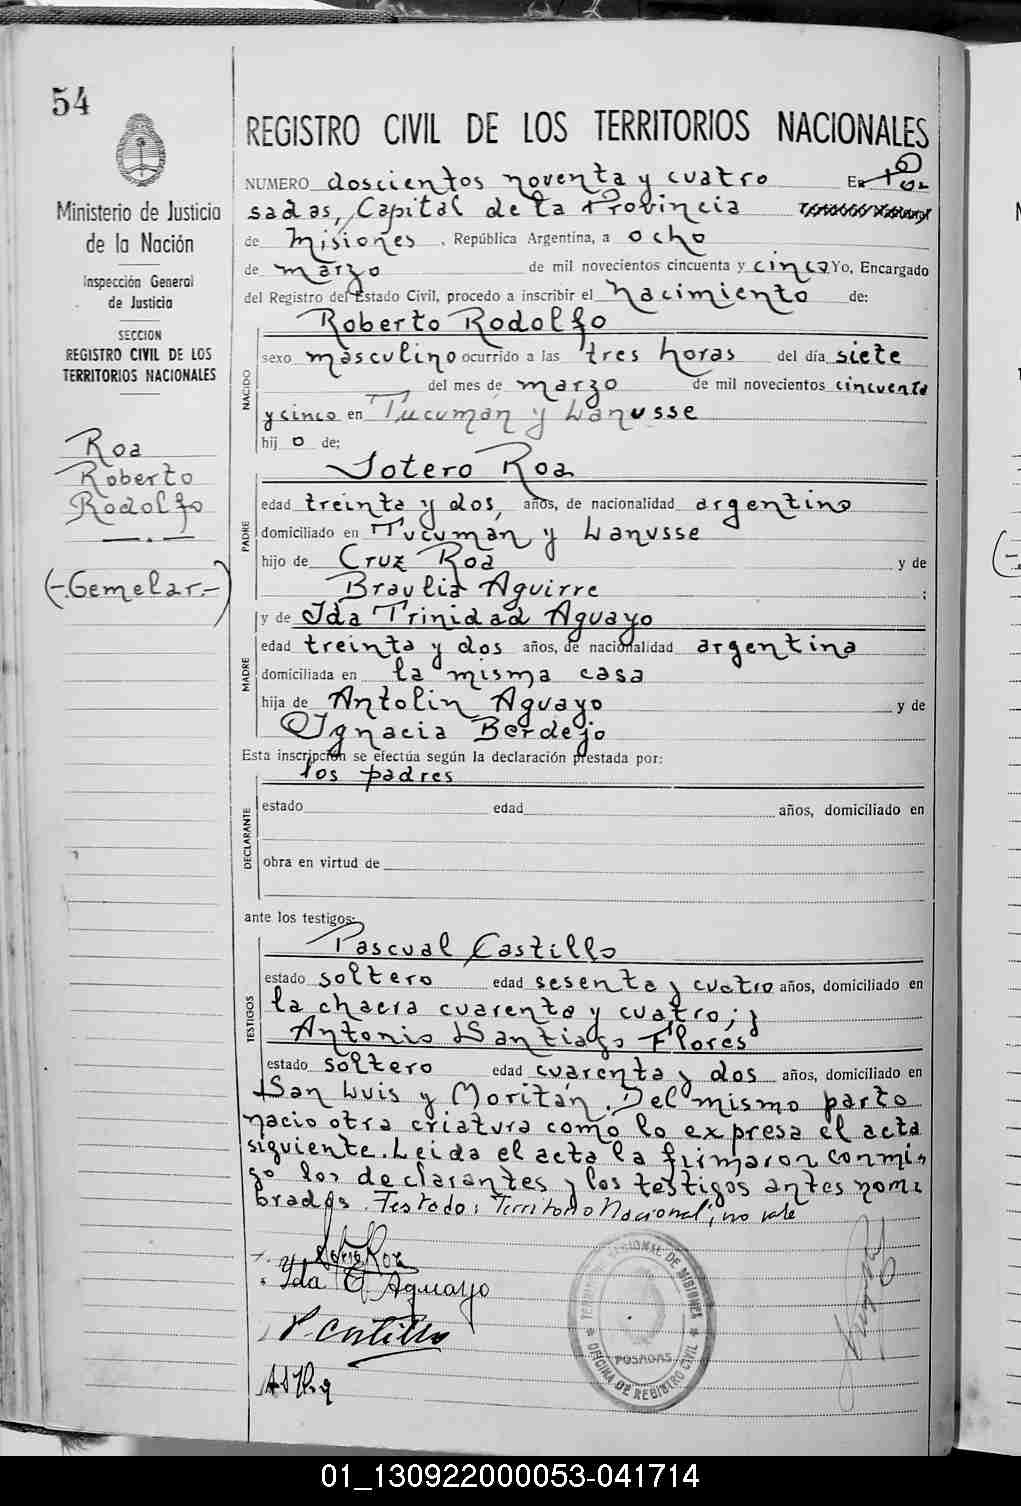 54
Ministerio de Justicia
de la Nación
Inspección General
de Justicia
SECCION
REGISTRO CIVIL DE LOS
TERRITORIOS NACIONALES
Roa
Roberto
Rodolfo
(-.Gemelar.-)
REGISTRO CIVIL DE LOS TERRITORIOS NACIONALES
NUMERO doscientos noventa y cuatro En Po-
sadas, Capital de la Provincia
de Misiones, República Argentina, a ocho
de marzo de mil novecientos cincuenta y cinco Yo, Encargado
del Registro del Estado Civil, procedo a inscribir el nacimiento de:
Roberto Rodolfo
NACIDO
sexo masculino ocurrido a las tres horas del día siete
del mes de marzo de mil novecientos cincuenta
y cinco en Tucumán y Lanusse
hij o de;
Sotero Roa
PADRE
edad treinta y dos, años, de nacionalidad argentino
domiciliado en Tucumán y Lanusse
hijo de Cruz Roa y de
Braulia Aguirre ;
y de Ida Trinidad Aguayo
MADRE
edad treinta y dos años, de nacionalidad argentina
domiciliada en la misma casa
hija de Antolin Aguayo y de
Ignacia Berdejo
Esta inscripción se efectúa según la declaración prestada por:
los padres
DECLARANTE
estado edad años, domiciliado en
obra en virtud de
ante los testigos:
Pascual Castillo
TESTIGOS
estado soltero edad sesenta y cuatro años, domiciliado en
la chacra cuarenta y cuatro; y
Antonio Santiago Flores
estado soltero edad cuarenta y dos años, domiciliado en
San Luis y Moritán. Del mismo parto
nacio otra criatura como lo expresa el acta
siguiente. Leida el acta la firmaron conmi-
go los declarantes y los testigos antes nom-
brados. Testado: Territorio Nacional; no vale
Sotero Roa
Ida T. Aguayo
P. Castillo
POSADAS
OFICINA DE REGISTRO CIVIL
01_130922000053-041714